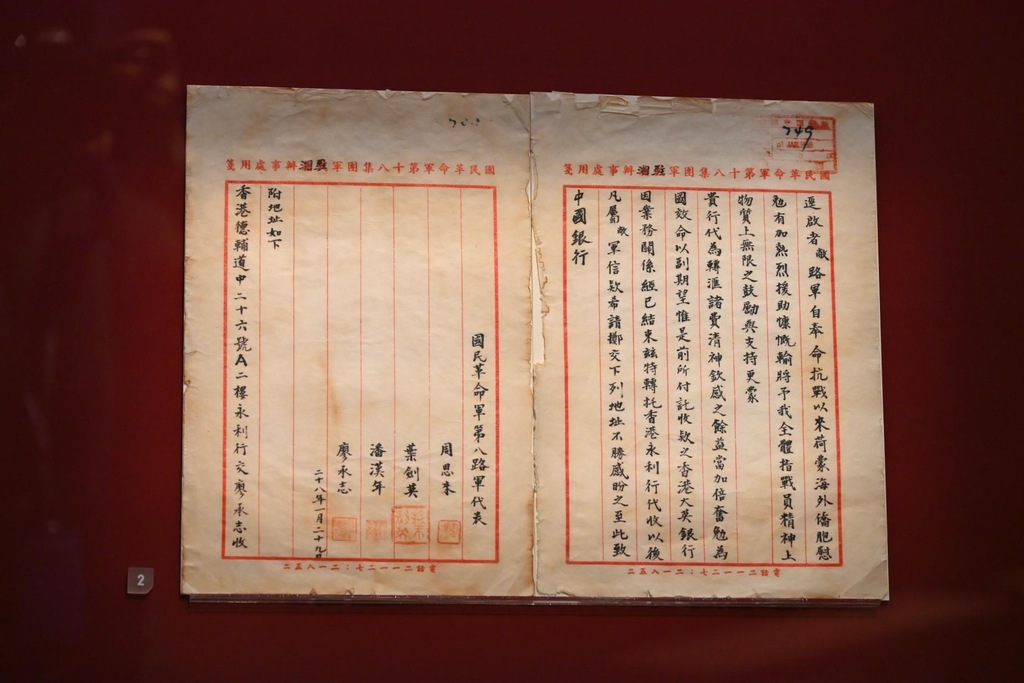 749
國民革命軍第十八集團軍駐湘辦事處用箋
逕啟者敝路軍自奉 命抗戰以來荷蒙海外僑胞慰
勉有加熱烈援助慷慨輸將予我全體指戰員精神上
物質上無限之鼓勵與支持更蒙
貴行代為轉滙諸費清神欽感之餘益當加倍奮勉為
國效命以副期望惟是前所付託收款之香港大英銀行
因業務關係經已結束茲特轉托香港永利行代收以後
凡屬敝軍信款希請擲交下列地址不勝感盼之至此致
中國銀行
電話二一一二七：二一八五二
國民革命軍第十八集團軍駐湘辦事處用箋
國民革命軍第八路軍代表
周恩来
葉劍英
潘漢年
廖承志
二十八年一月二十九日
附地址如下
香港德輔道中二十六號A二樓永利行交廖承志收
電話二一一二七：二一八五二
2